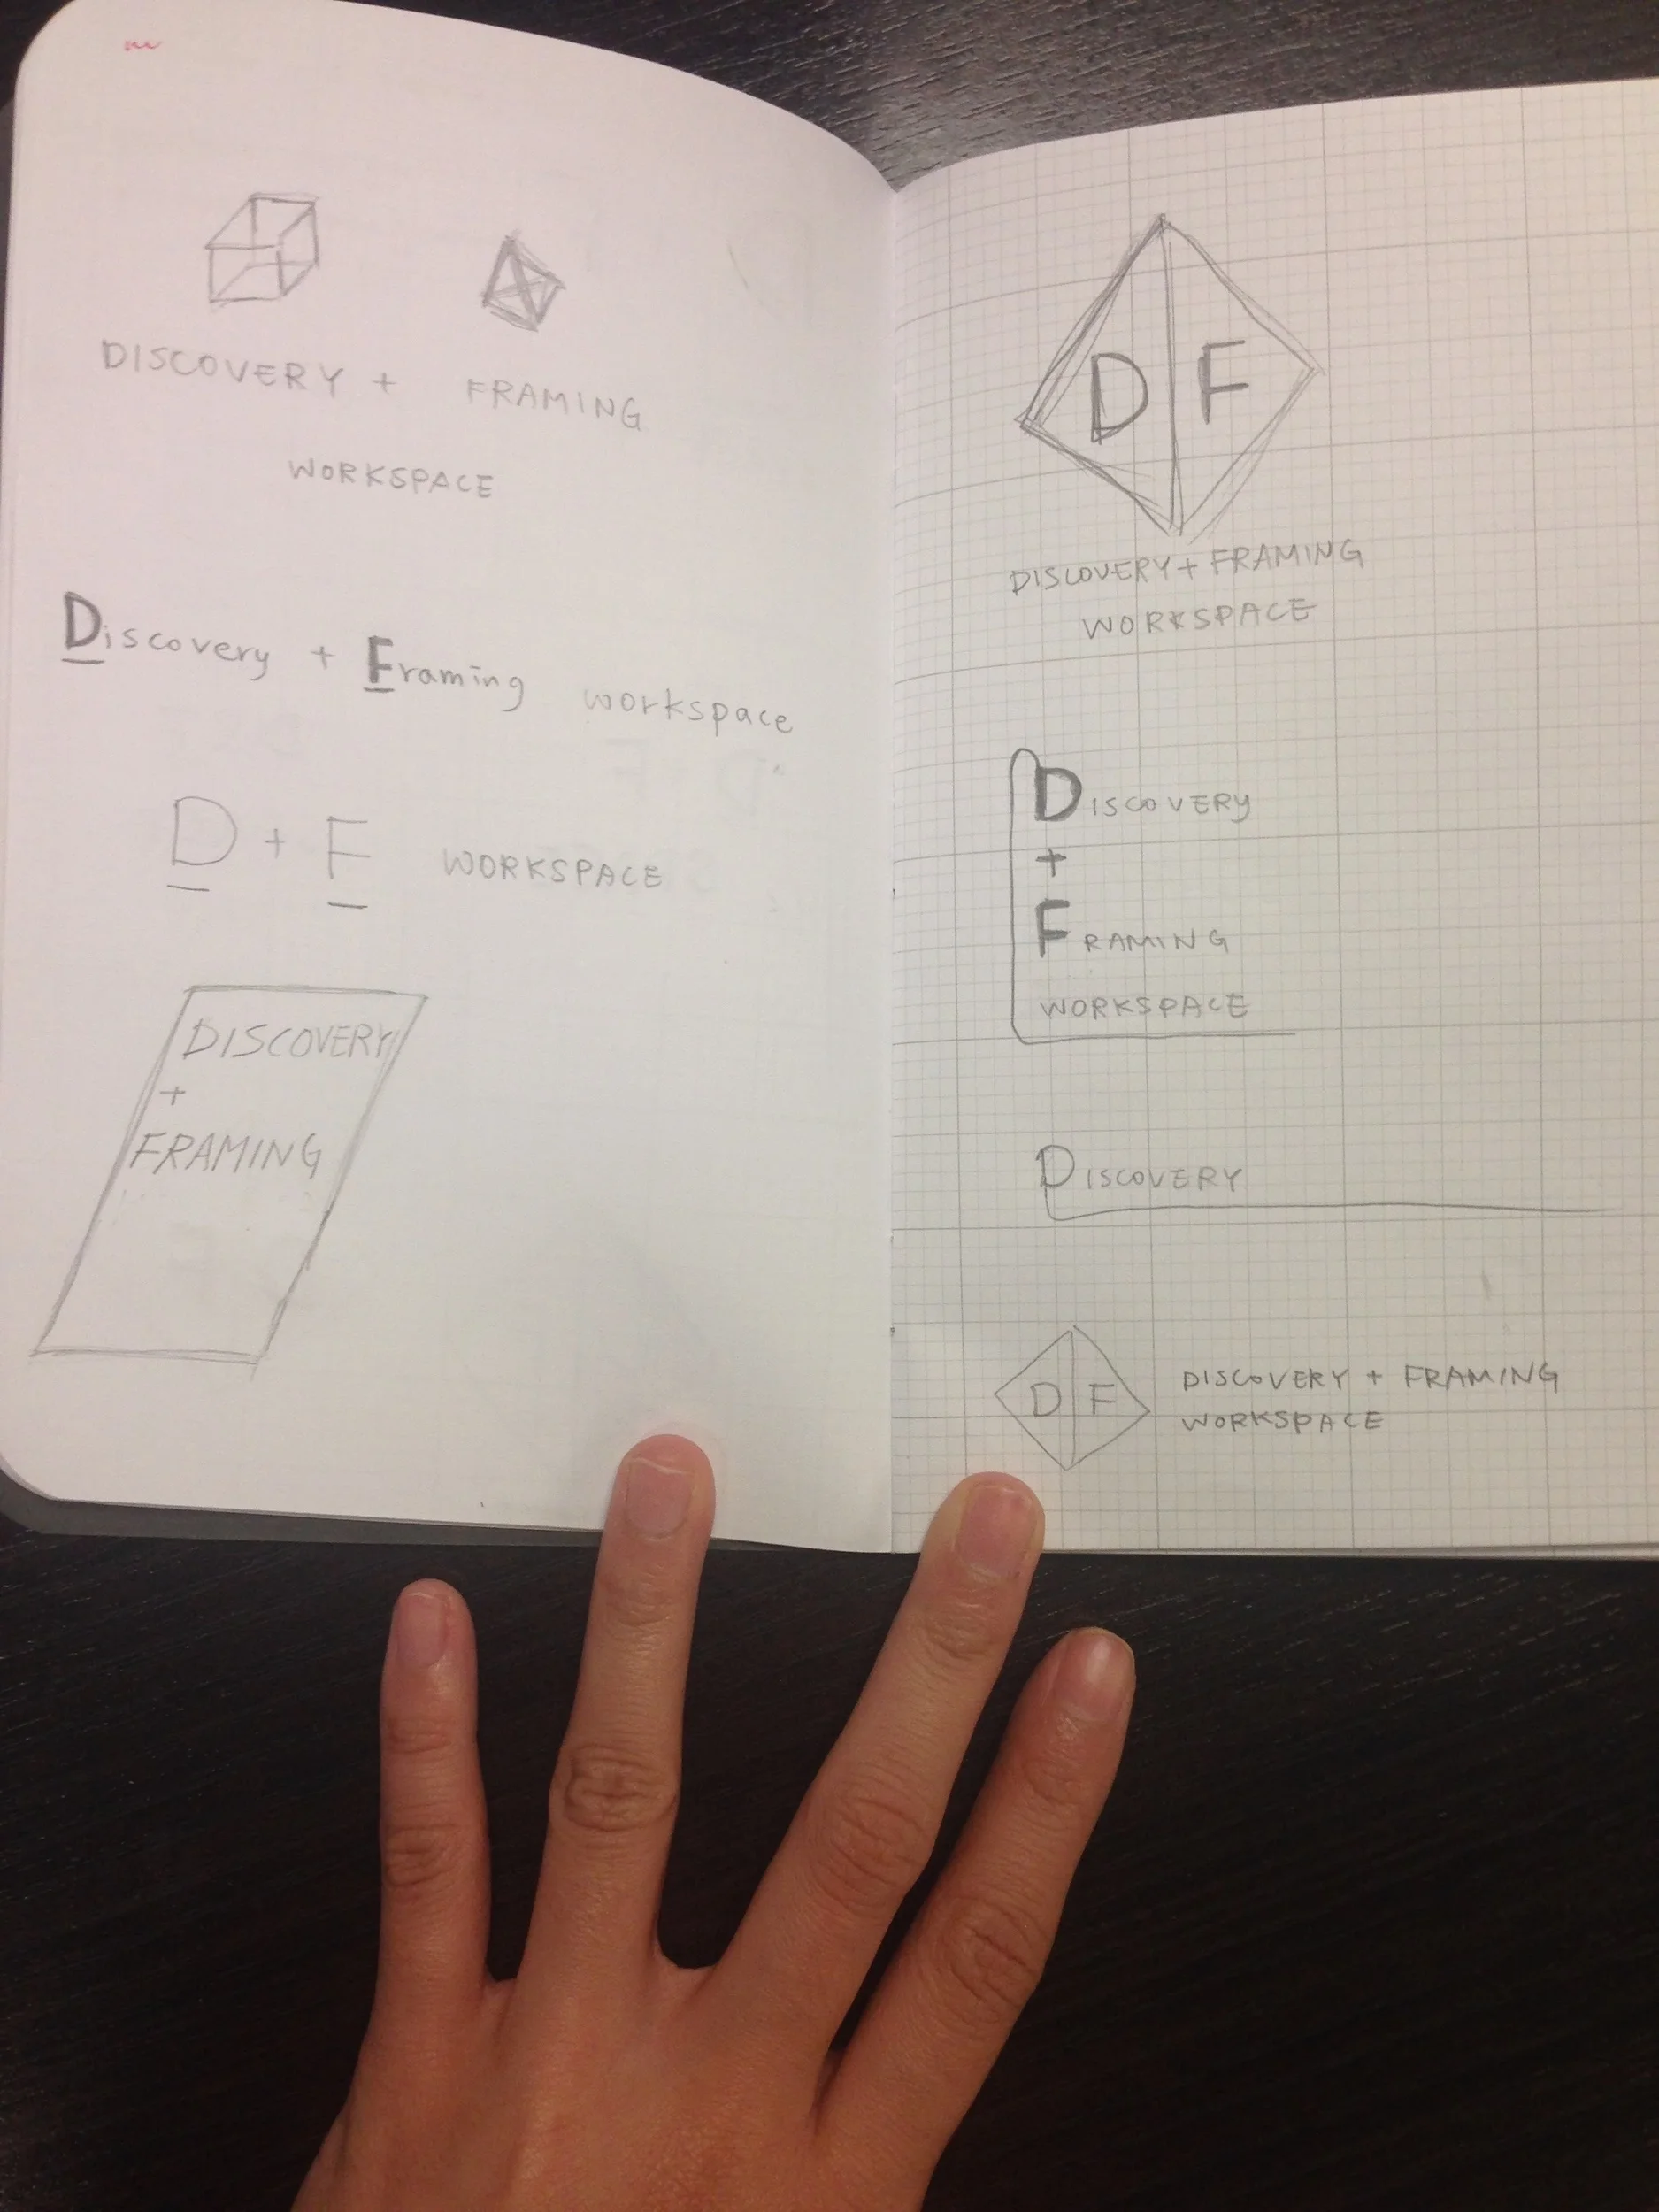 DISCOVERY + FRAMING
WORKSPACE
Discovery + Framing workspace
D + F WORKSPACE
DISCOVERY
+
FRAMING
D F
DISCOVERY + FRAMING
WORKSPACE
DISCOVERY
+
FRAMING
WORKSPACE
DISCOVERY
D F
DISCOVERY + FRAMING
WORKSPACE